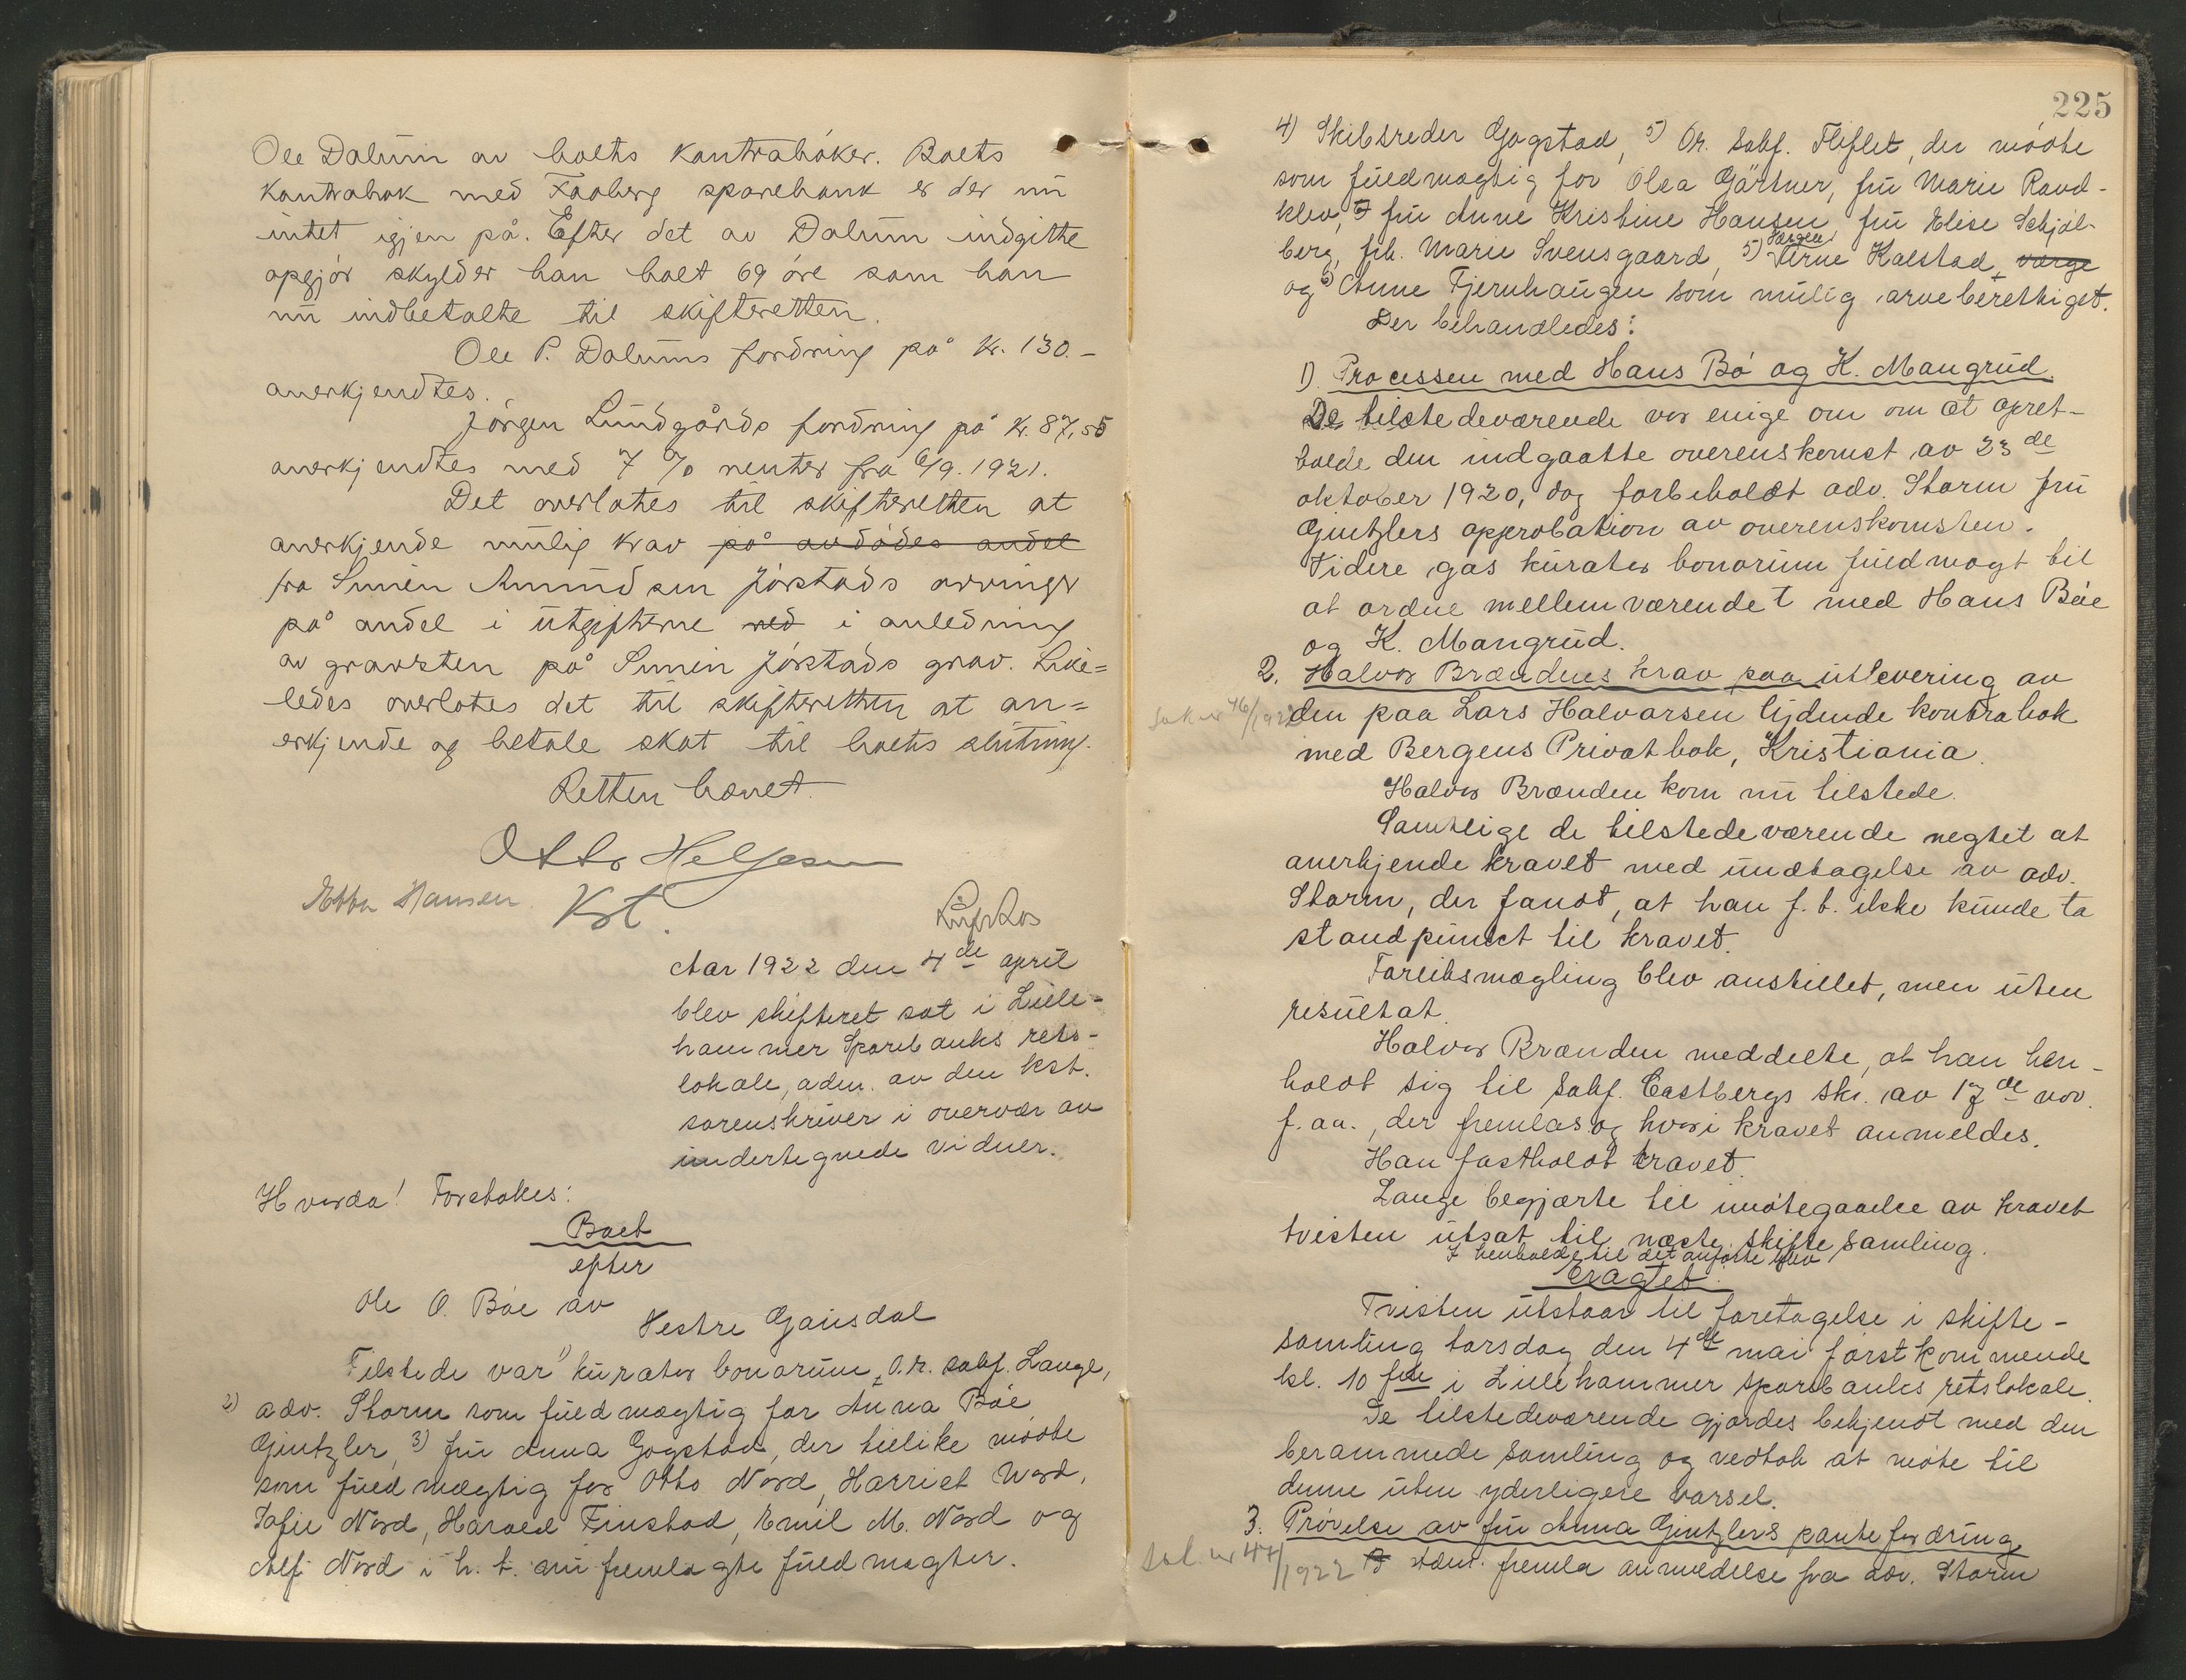 Ole Dalum av boets kontrabøker. Boets
kontrabok med Faaberg sparebank er der nu
intet igjen på. Efter det av Dalum indgitte
opgjør skylder han boet 69 øre som han
nu indbetalte til skifteretten.
Ole P. Dalums fordring på kr. 130.-
anerkjendtes.
Jörgen Lundgårds fordring på kr. 87,55
anerkjendtes med 7 % renter fra 6/9. 1921.
Det overlates til skifteretten at
anerkjende mulig krav på avdødes andel
fra Simen Amundsen Jörstads arvinger
på andel i utgifterne ved i anledning
av gravsten på Simen Jörstads grav. Like=
ledes overlates det til skifteretten at an=
erkjende og betale skat til boets slutning.
Retten hævet.
Otto Helgesen
Ebba Hansen. Kst.
Aar 1922 den 4de april
blev skifteret sat i Lille-
hammer Sparebanks rets-
lokale, adm. av den kst.
sorenskriver i overvær av
undertegnede vidner.
Hvorda! Foretokes:
Boet
efter
Ole O. Bøe av
Vestre Gausdal
Tilstede var 1) kurator bonorum, O.r. sakf. Lange,
2) adv. Storm som fuldmægtig for Anna Bøe
Gjintzler, 3) fru Anna Gogstad, der tillike mødte
som fuldmægtig for Otto Nord, Harriet Word,
Sofie Nord, Harald Finstad, Emil M. Nord og
Alf Nord i h. t. nu fremlagte fuldmagter.
225
4) Skibsreder Gogstad, 5) Or. Sakf. Fliflet, der mødte
som fuldmægtig for Olea Gärtner, fru Marie Rand-
klev, fru Anne Kristine Hansen, fru Elise Schjøl-
berg, frk. Marie Svensgaard, 5) værgen Arne Kalstad, værge
og 6) Anne Fjernhaugen som mulig arveberettiget.
Der behandledes:
1) Processen med Hans Bö og K. Mangrud.
De tilstedeværende var enige om om at opret-
holde den indgaatte overenskomst av 23de
oktober 1920, dog forbeholdt adv. Storm fru
Gjintzlers approbation av overenskomsten.
Videre gas kurator bonorum fuldmagt til
at ordne mellemværendet med Hans Bøe
og K. Mangrud.
2. Halvor Brændens krav paa utlevering av
Sak nr 46/1922
den paa Lars Halvorsen lydende kontrabok
med Bergens Privatbok, Kristiania.
Halvor Brænden kom nu tilstede.
Samtlige de tilstedeværende negtet at
anerkjende kravet med undtagelse av adv.
Storm, der fandt, at han f. t. ikke kunde ta
standpunkt til kravet.
Forliksmægling blev anstillet, men uten
resultat.
Halvor Brænden meddelte, at han hen-
holdt sig til sakf. Castbergs skr. av 17de nov.
f. aa., der fremlas og hvori kravet anmeldes.
Han fastholdt kravet.
Lange begjærte til imøtegaaelse av kravet
tvisten utsat til næste skiftesamling.
I henhold til det anførte blev
eragtet:
Tvisten utstaar til foretagelse i skifte-
samling torsdag den 4de mai førstkommende
kl. 10 fm i Lillehammer sparebanks retslokale.
De tilstedeværende gjordes bekjendt med den
berammede samling og vedtok at møte til
denne uten yderligere varsel.
3. Prøvelse av fru Anna Gjintzlers pantefordring.
Sak. nr 44/1922
Adm. fremla anmeldelse fra adv. Storm